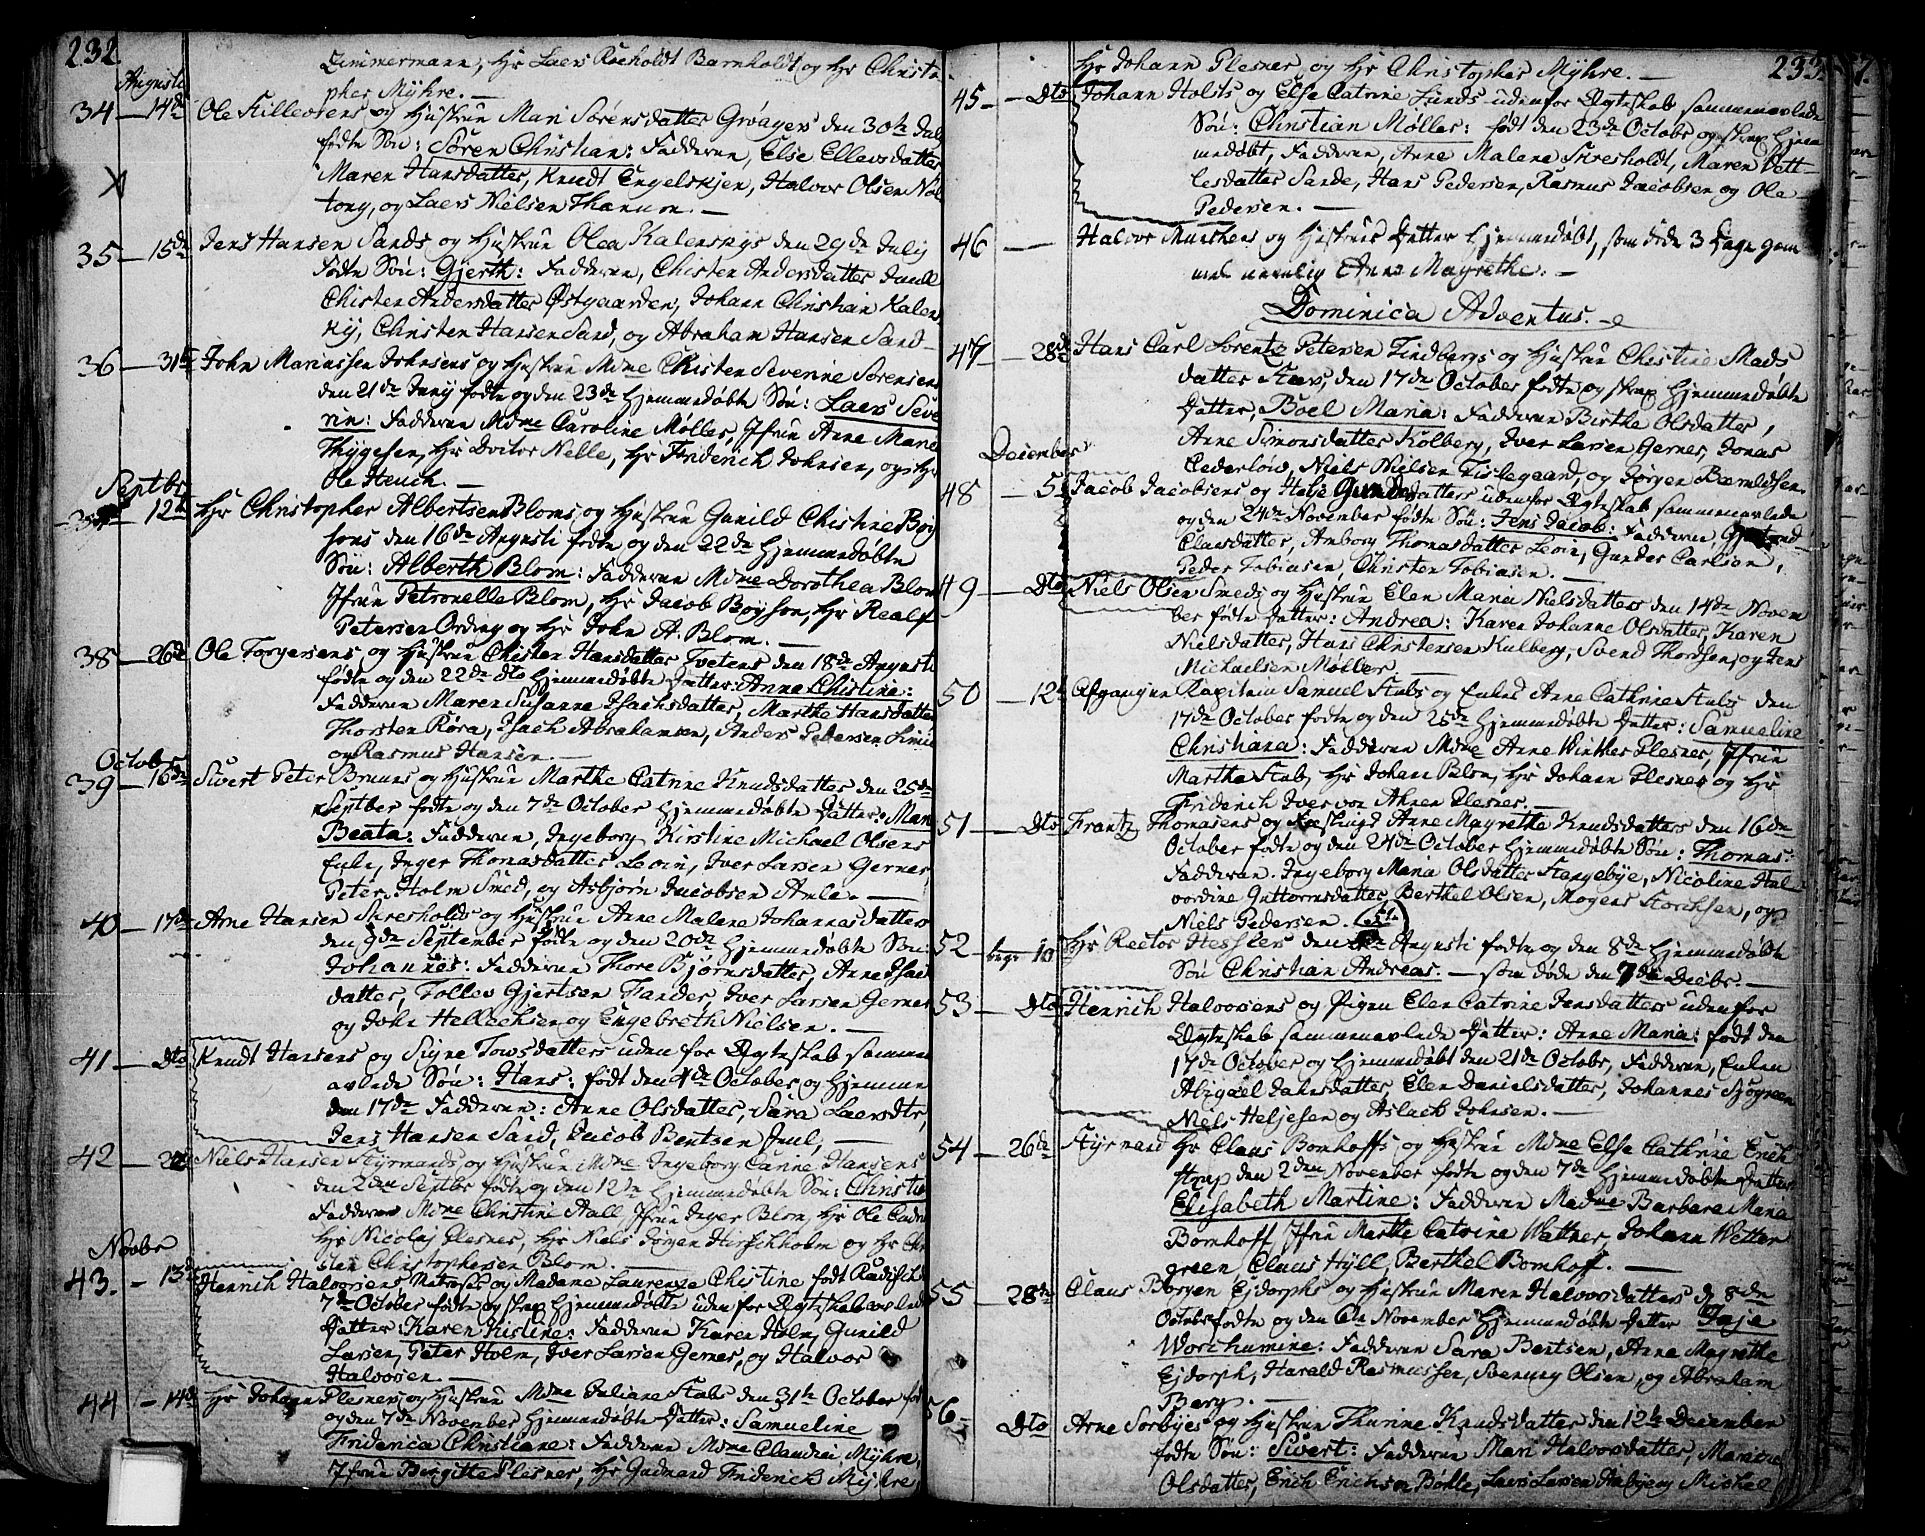 232
Zimmermann, Hr Laers Roeholdt Barnholdt og Hr Christo
pher Myhre. —
Augusti
34 — 14de Ole Killevsens og Hustrue Mari Sørensdatter Grøagers den 30te July
fødte Søn: Søren Christian: Fadderne, Else Ellevsdatter
Maren Hansdatter, Knudt Engelskjen, Halvor Olsen Nøl
tong, og Laers Nielsen Thannon. —
35 — 15de Jens Hansen Sands og Hustrue Olea Kalenskys den 29de July
fødte Søn: Gjerth: Fadderne, Chisten Andersdatter Juell
Chisten Andersdatter Østgaarden, Johann Christian Kalens
ky, Christen Hansen Sand, og Abraham Hansen Sand —
36 — 31te John Mariussen Johnsens og Hustrue Mdme Chisten Severine Sørensens
den 21de Juny fødte og den 23de Hjemmedøbte Søn: Laers Seve
rin: Fadderne Mdme Caroline Møller, Jfrue Anne Marie
Thygesen, Hr Doctor Nelle, Hr Friderich Johnsen, og Hr
Ole Heuch. —
Septbr
12te Hr Christopher Albertsen Bloms og Hustrue Gunild Christine Boy
sens den 16de Augusti fødte og den 22de Hjemmedøbte
Søn: Alberth Blom: Fadderne Mdme Dorothea Blom
Jfrue Petronelle Blom, Hr Jacob Boyson, Hr Realf
Petersen Ording og Hr John A. Blom. —
38 — 26de Ole Torgersens og Hustrue Chisten Hansdatter Tvetens den 18de Augusti
fødte og den 22de dto Hjemmedøbte Datter: Anna Chistine:
Fadderne Maren Susanne Isachsdatter, Marthe Hansdatter
Thorsten Røra, Isach Abrahamsen, Anders Pedersen
og Rasmus Hansen. —
Octobr
39 — 16de Sivert Peter Bruuns og Hustrue Marthe Catrine Knudsdatter den 25de
Septber fødte og den 7de October Hjemmedøbte Datter: Mari
Beata: Fadderne, Ingeborg Kirstine Michael Olsens
Enke, Inger Thomasdatter Leoin, Iver Larsen Gernes
Peter Holm Smed, og Asbjørn Jacobsen Amle. —
40 — 17de Arne Hansen Skresholds og Hustrue Anne Malene Johannesdatters
den 9de September fødte og den 20de Hjemmedøbte Søn:
Johannes: Fadderne Thore Bjørnsdatter, Anne Isac
datter, Tollev Gjertsen Fander, Iver Larsen Gernes
og John Hellechsen og Engebreth Nielsen. —
41 — Dto Knudt Hansens og Signe Towsdatters uden for Ægteskab sammen
avlede Søn: Hans: født den 4de October og Hjemme
den 17de Fadderne: Anne Olsdatter, Sara Laersdtr,
Jens Hansen Sand, Jacob Bentzen Juul, —
42 — Niels Hansen Styrmands, og Hustrue Mdme Ingeborg Canine Hansens
den 2den Septbr fødte og den 12te Hjemmedøbte Søn: Christi
Fadderne Mdme Christine Aall Jfrue Inger Blom, Hr Ole
Hr Nicolaj Plesner, Hr Niels Jørgen Hirschholm og Hr Chr
sten Christophersen Blom. —
Novbr
43. — 13de Henrich Halvorsens Matros og Madame Laurenze Christine født
7de October fødte og strax Hjemmedøbte uden for Ægteskab avlede
Datter: Karen Kistine: Fadderne Karen Holm, Gunild
Larsen, Peter Holm, Iver Larsen Gernes, og Halvor
Halvorsen. —
44 — 14de Hr Johann Plesners og Hustrue Mdme Juliane Stabs den 31te October fød
og den 7de November Hjemmedøbte Datter: Samueline
Friderica Christiane: Fadderne Mdme Claudia Myhre,
Jfrue Birgitte Plesner, Hr Gudmand Friderich Myhre,
233.
Hr Johann Plesner, og Hr Christopher Myhre. —
45 — Dto Johann Holsts og Else Catrine Lunds udenfor Ægteskab sammenavlede
Søn: Christian Møller: født den 23de Octobr og strax Hjem
medøbt, Fadderne, Anne Malene Skresholdt, Maren Dett-
lesdatter Sande, Hans Pedersen, Rasmus Jacobsen og Ole
Pedersen. —
46 — Halvor Murthes og Hustrues Datter Hjemmedøbt, som døde 3 Dage gam
mel nemlig Anne Magrethe. —
Dominica Adventus.
47 — 28de Hans Carl Lorentz Petersen Lindbergs og Hustrue Christine Mads
datter Staer, den 17de October fødte og strax Hjemmedøbte
Datter, Boel Maria: Fadderne Birthe Olsdatter,
Anne Simonsdatter Kolberg, Iver Larsen Gernes, Jonas
Cederløw, Niels Nielsen Fislegaard, og Jørgen Berntdsen
December
48 — 5 Jacob Jacobsens og Helje Gundersdatters udenfor Ægteskab sammenavlede
og den 24de November fødte Søn: Jens Jacob: Fadderne
Claesdatter, Anborg Thomasdatter Leoin, Gunder Carlson,
Peder Tobiasen, Christen Tobiasen. —
49 — Dto Niels Olsen Smeds og Hustrue Elen Maria Nielsdatters den 14de Novem
ber fødte Datter: Andrea: Karen Johanne Olsdatter, Karen
Nielsdatter, Hans Christensen Kulberg, Svend Thordsen, og Jens
Michaelsen Møller —
50 — 12te Afgangne Kapitein Samuel Stabs og Enked Anne Cathrine Stabs den
17de October fødte og den 25de Hjemmedøbte Datter: Samueline
Christiana: Fadderne Mdme Anne Winther Plesner, Jfrue
Martha Stab, Hr Johan Blom, Hr Johann Plesner og Hr
Friderich Iver von Ahnen Plesner. —
51 — Dto Frantz Thomasens og Anne Magrethe Knudsdatters den 16de
October fødte og den 24de October Hjemmedøbte Søn: Thomas:
Fadderne. Ingeborg Maria Olsdatter Stangebye, Nicoline Hal
vordine Guttormsdatter, Berthel Olsen, Mogens Storchsen, og
Niels Pedersen.
52 — begr 10 Hr Rector Hesslers den Augusti fødte og den 8de Hjemmedøbte
Søn Christian Andreas. — som døde den 7de Decbr. —
53 — Dto Henrich Halvorsens og Pigen Elen Catrine Jensdatters uden for
Ægteskab sammenavlede Datter: Anne Maria: født den
17de October og Hjemmedøbt den 21de Octobr, Fadderne, Enken
Abigael Jahnsdatter, Elen Danielsdatter, Johannes Sjøgreen
Niels Heljesen og Aslach Johnsen. —
54 — 26de Styrmand Hr Claus Bomhoffs og Hustrue Mdme Else Cathrine Erich
strup den 2den November fødte og den 7de Hjemmedøbte Datter
Elisabeth Martine: Fadderne Madme Barbara Maria
Bomhoff Jfrue Marthe Catrine Wetter, Johann Wetter
green Claus Hyll, Berthel Bomhof. —
55 — 28de Claus Børgen Ejdorphs og Hustrue Maren Halvorsdatters d 8de
Octobr fødte og den 6te November Hjemmedøbte Datter Inje
Worchumine: Fadderne Sara Bentsen, Anne Magrethe
Ejdorph, Harald Rasmussen, Svenung Olsen, og Abraham
Berg. —
56 — Dto Arne Sorbyes og Hustrue Thurine Knudsdatters den 12te December
fødte Søn: Sivert: Fadderne Mari Halvorsdatter, Marthe
Olsdatter, Erich Erichsen Bøhle, Laers Larsen Aabyeog Michel